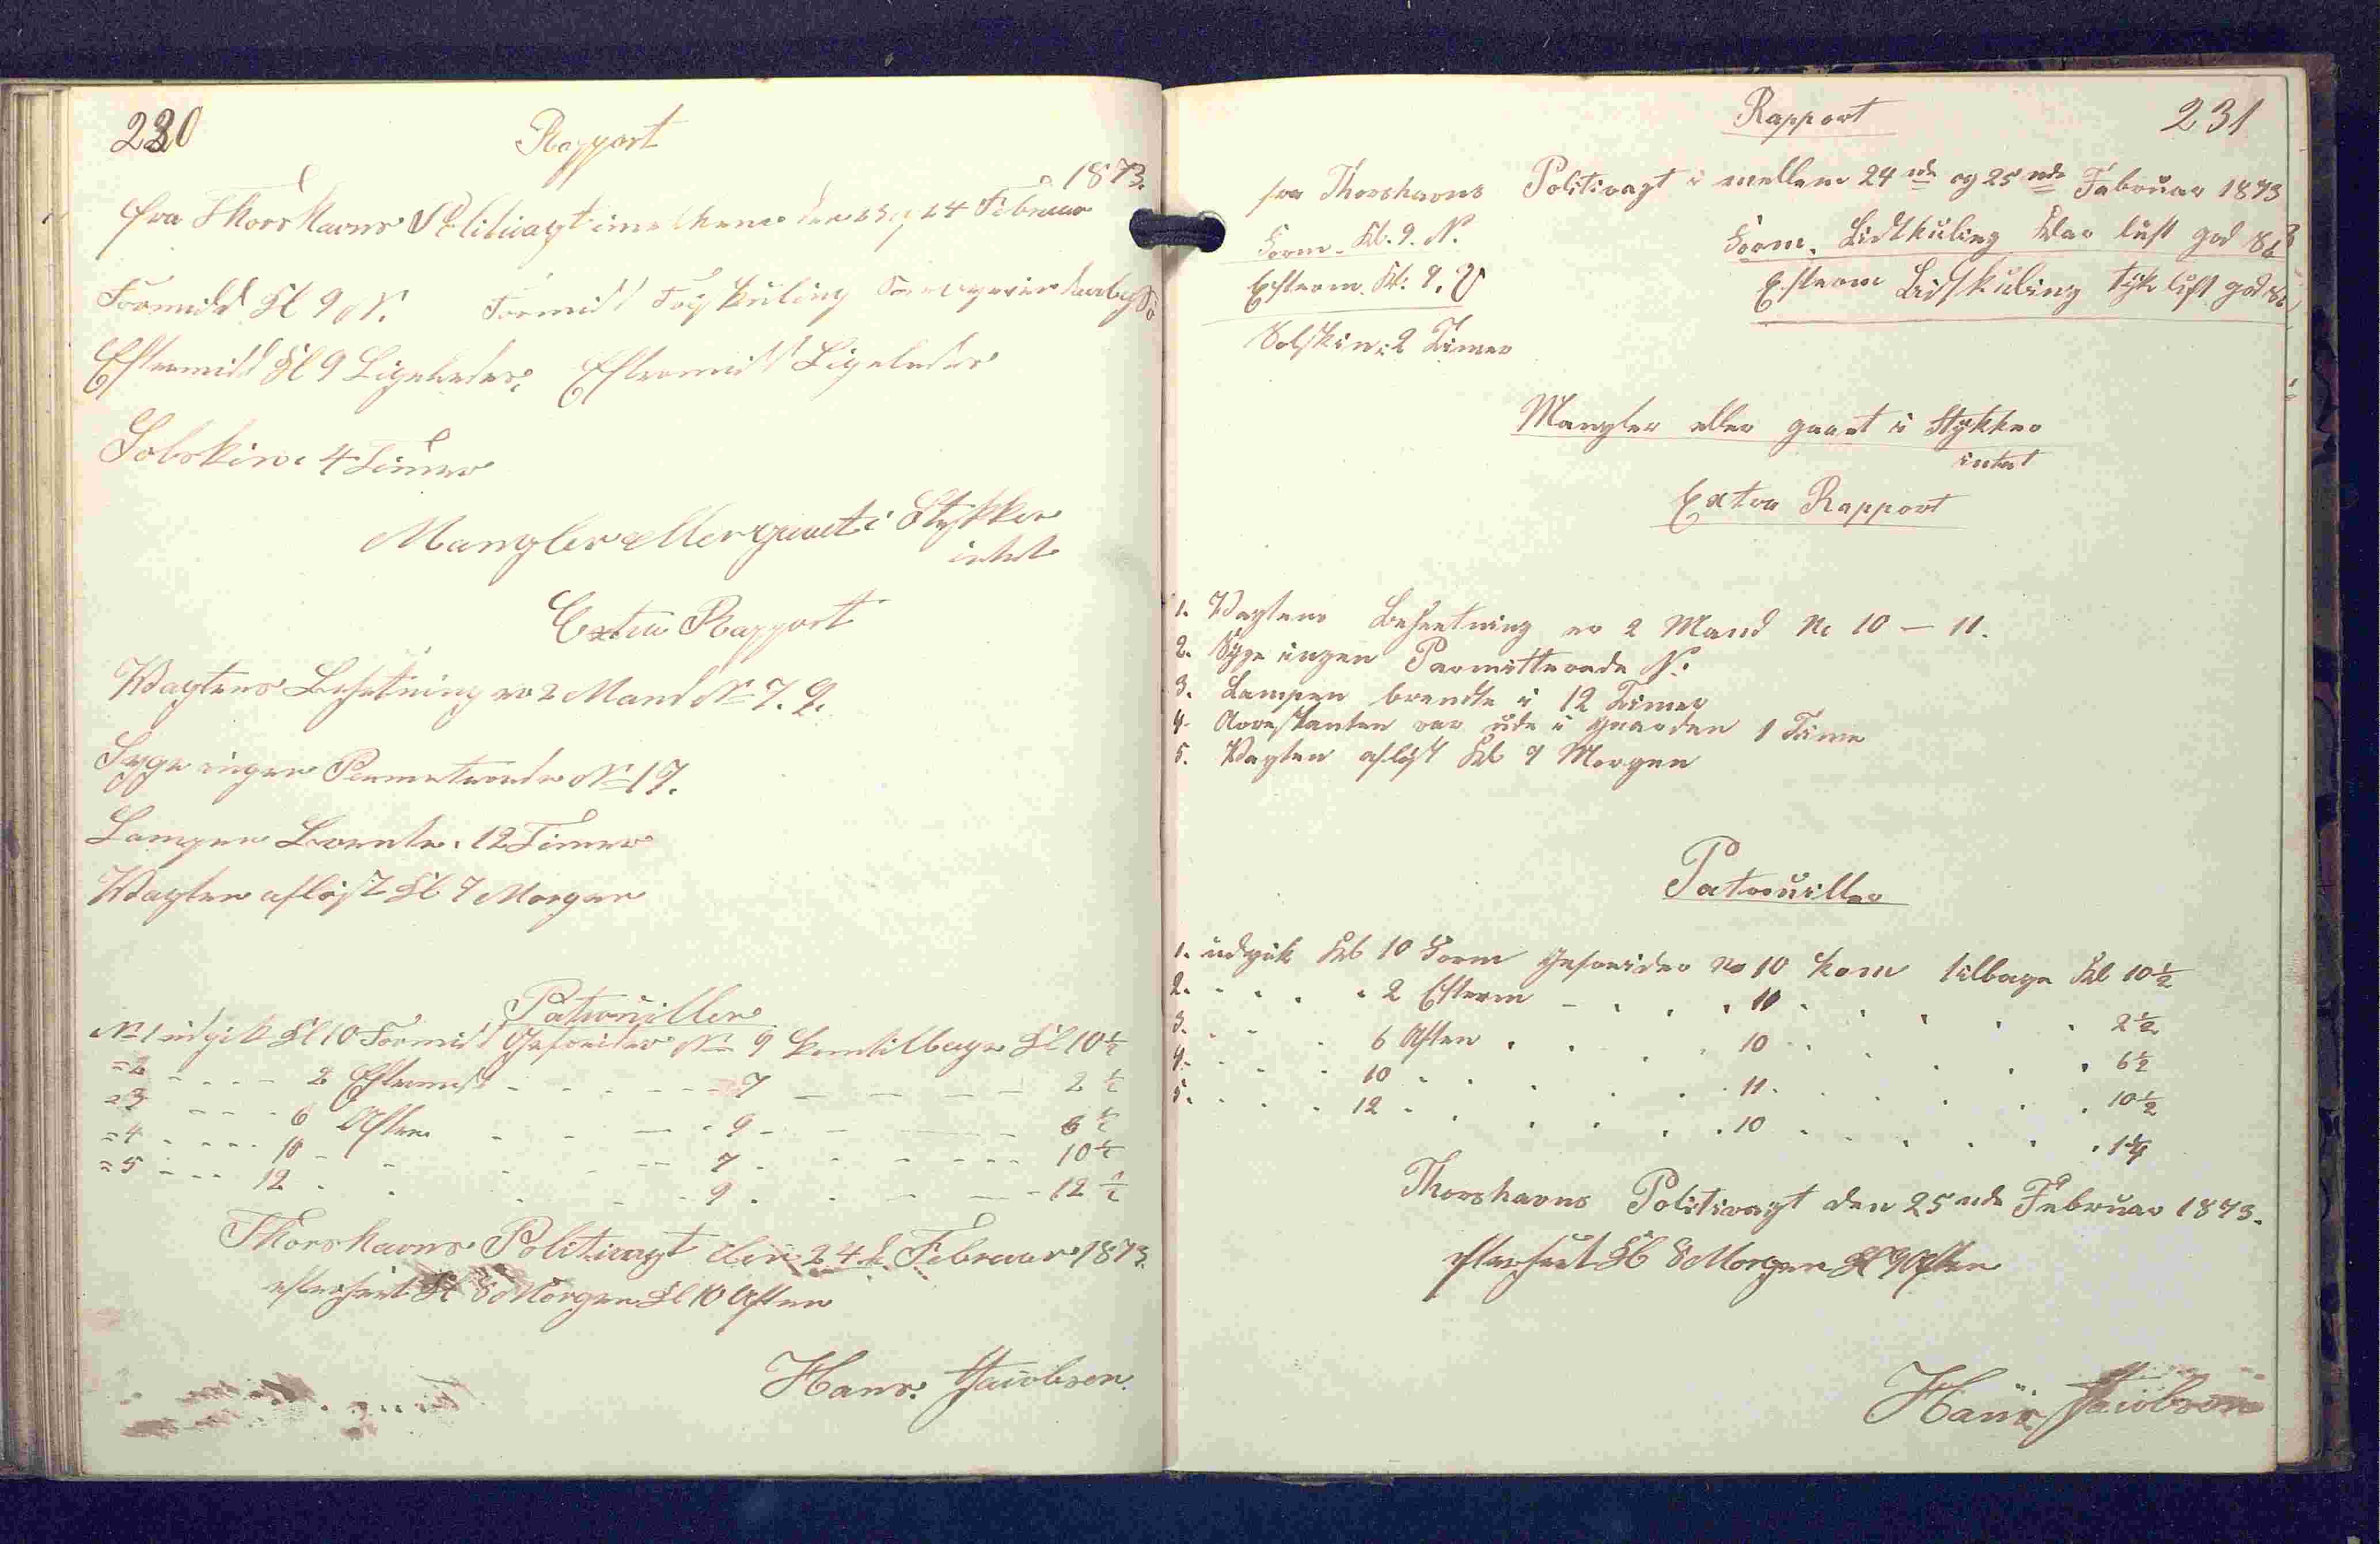 230
Rapport
fra Thorshavns Politivagt imellem den 23 og 24 Februar 1873.
Formidd Kl 9 N. Formidd Tog Kuling
Eftermidd Kl 9 Ligeledes, Eftermidd Ligeledes
Solskin i 4 Timer
Mangler eller gaaet i Stykker
intet
Extra Rapport
Vagtens Besetning er 2 Mand No 7. 9.
Syge ingen Permeterende No 17.
Lampen Brente i 12 Timer
Vagten afløst Kl 9 Morgen
Patrouiller
No 1 udgik Kl 10 Formidd Gefreider No 9 kom tilbage Kl 10 1/2
=2 - - - - 2 Eftermidd - - - - - 7 - - - - 2 1/2
=3 - - - - 6 Aften - - - - 9 - - - - 6 1/2
=4 - - - - 10 - - - - - 7 - - - - 10 1/2
=5 - - - 12 - - - - - 9 - - - - 12 1/2
Thorshavns Politivagt den 24d Februar 1873.
efterseet Kl 8 Morgen Kl 10 Aften
Hans Jacobsen.
Rapport
231
fra Thorshavns Politivagt i mellem 24nde og 25nde Februar 1873
Form. Kl. 9. N. Form. Lidtkuling klar luft god
Efterm. Kl. 9. V Efterm Lidtkuling tyk luft god
Solskin i 2 Timer
Mangler eller gaaet i Stykker
intet
Extra Rapport
1. Vagtens Besætning er 2 Mand No 10 — 11.
2. Syge ingen Permitterede N.
3. Lampen brendte i 12 Timer
4. Arrestanten var ude i Gaarden 1 Time
5. Vagten afløst Kl 9 Morgen
Patrouiller
1. udgik Kl 10 Form Gefreider No 10 kom tilbage Kl 10 1/2
2. - - - - 2 Efterm - - - 11 - - - - 2 1/2
3. - - - 6 Aften - - - 10 - - - - 6 1/2
4. - - - 10 - - - - 11. - - - - 10 1/2
5. - - - 12 - - - - 10 - - - -
Thorshavns Politivagt den 25nde Februar 1873.
efterseet Kl 8 Morgen Kl 9 Aften
Hans Jacobsen